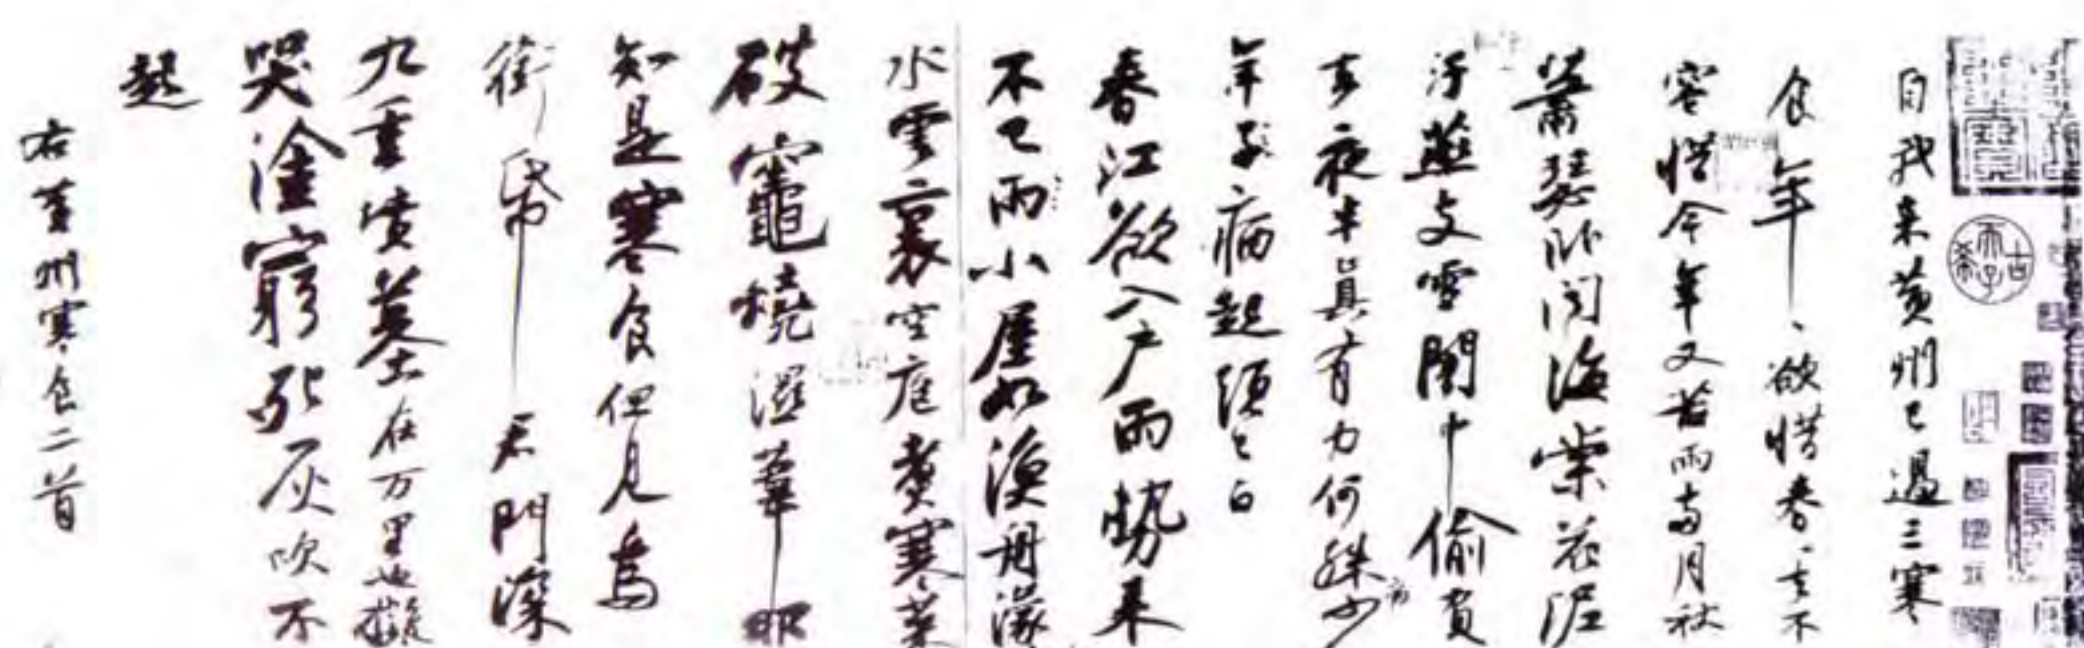 自我来黄州已過三寒
食年、欲惜春、去不
容惜今年又苦雨兩月秋
蕭瑟卧聞海棠花泥
汙燕支雪闇中偷負
去夜半真有力何殊少
年子病起須已白
春江欲入戶雨勢来
不已雨小屋如漁舟濛
水雲裏空庖煮寒菜
破竈燒濕葦那
知是寒食但見烏
銜帋君門深
九重墳墓在万里也擬
哭塗窮死灰吹不
起
右黄州寒食二首